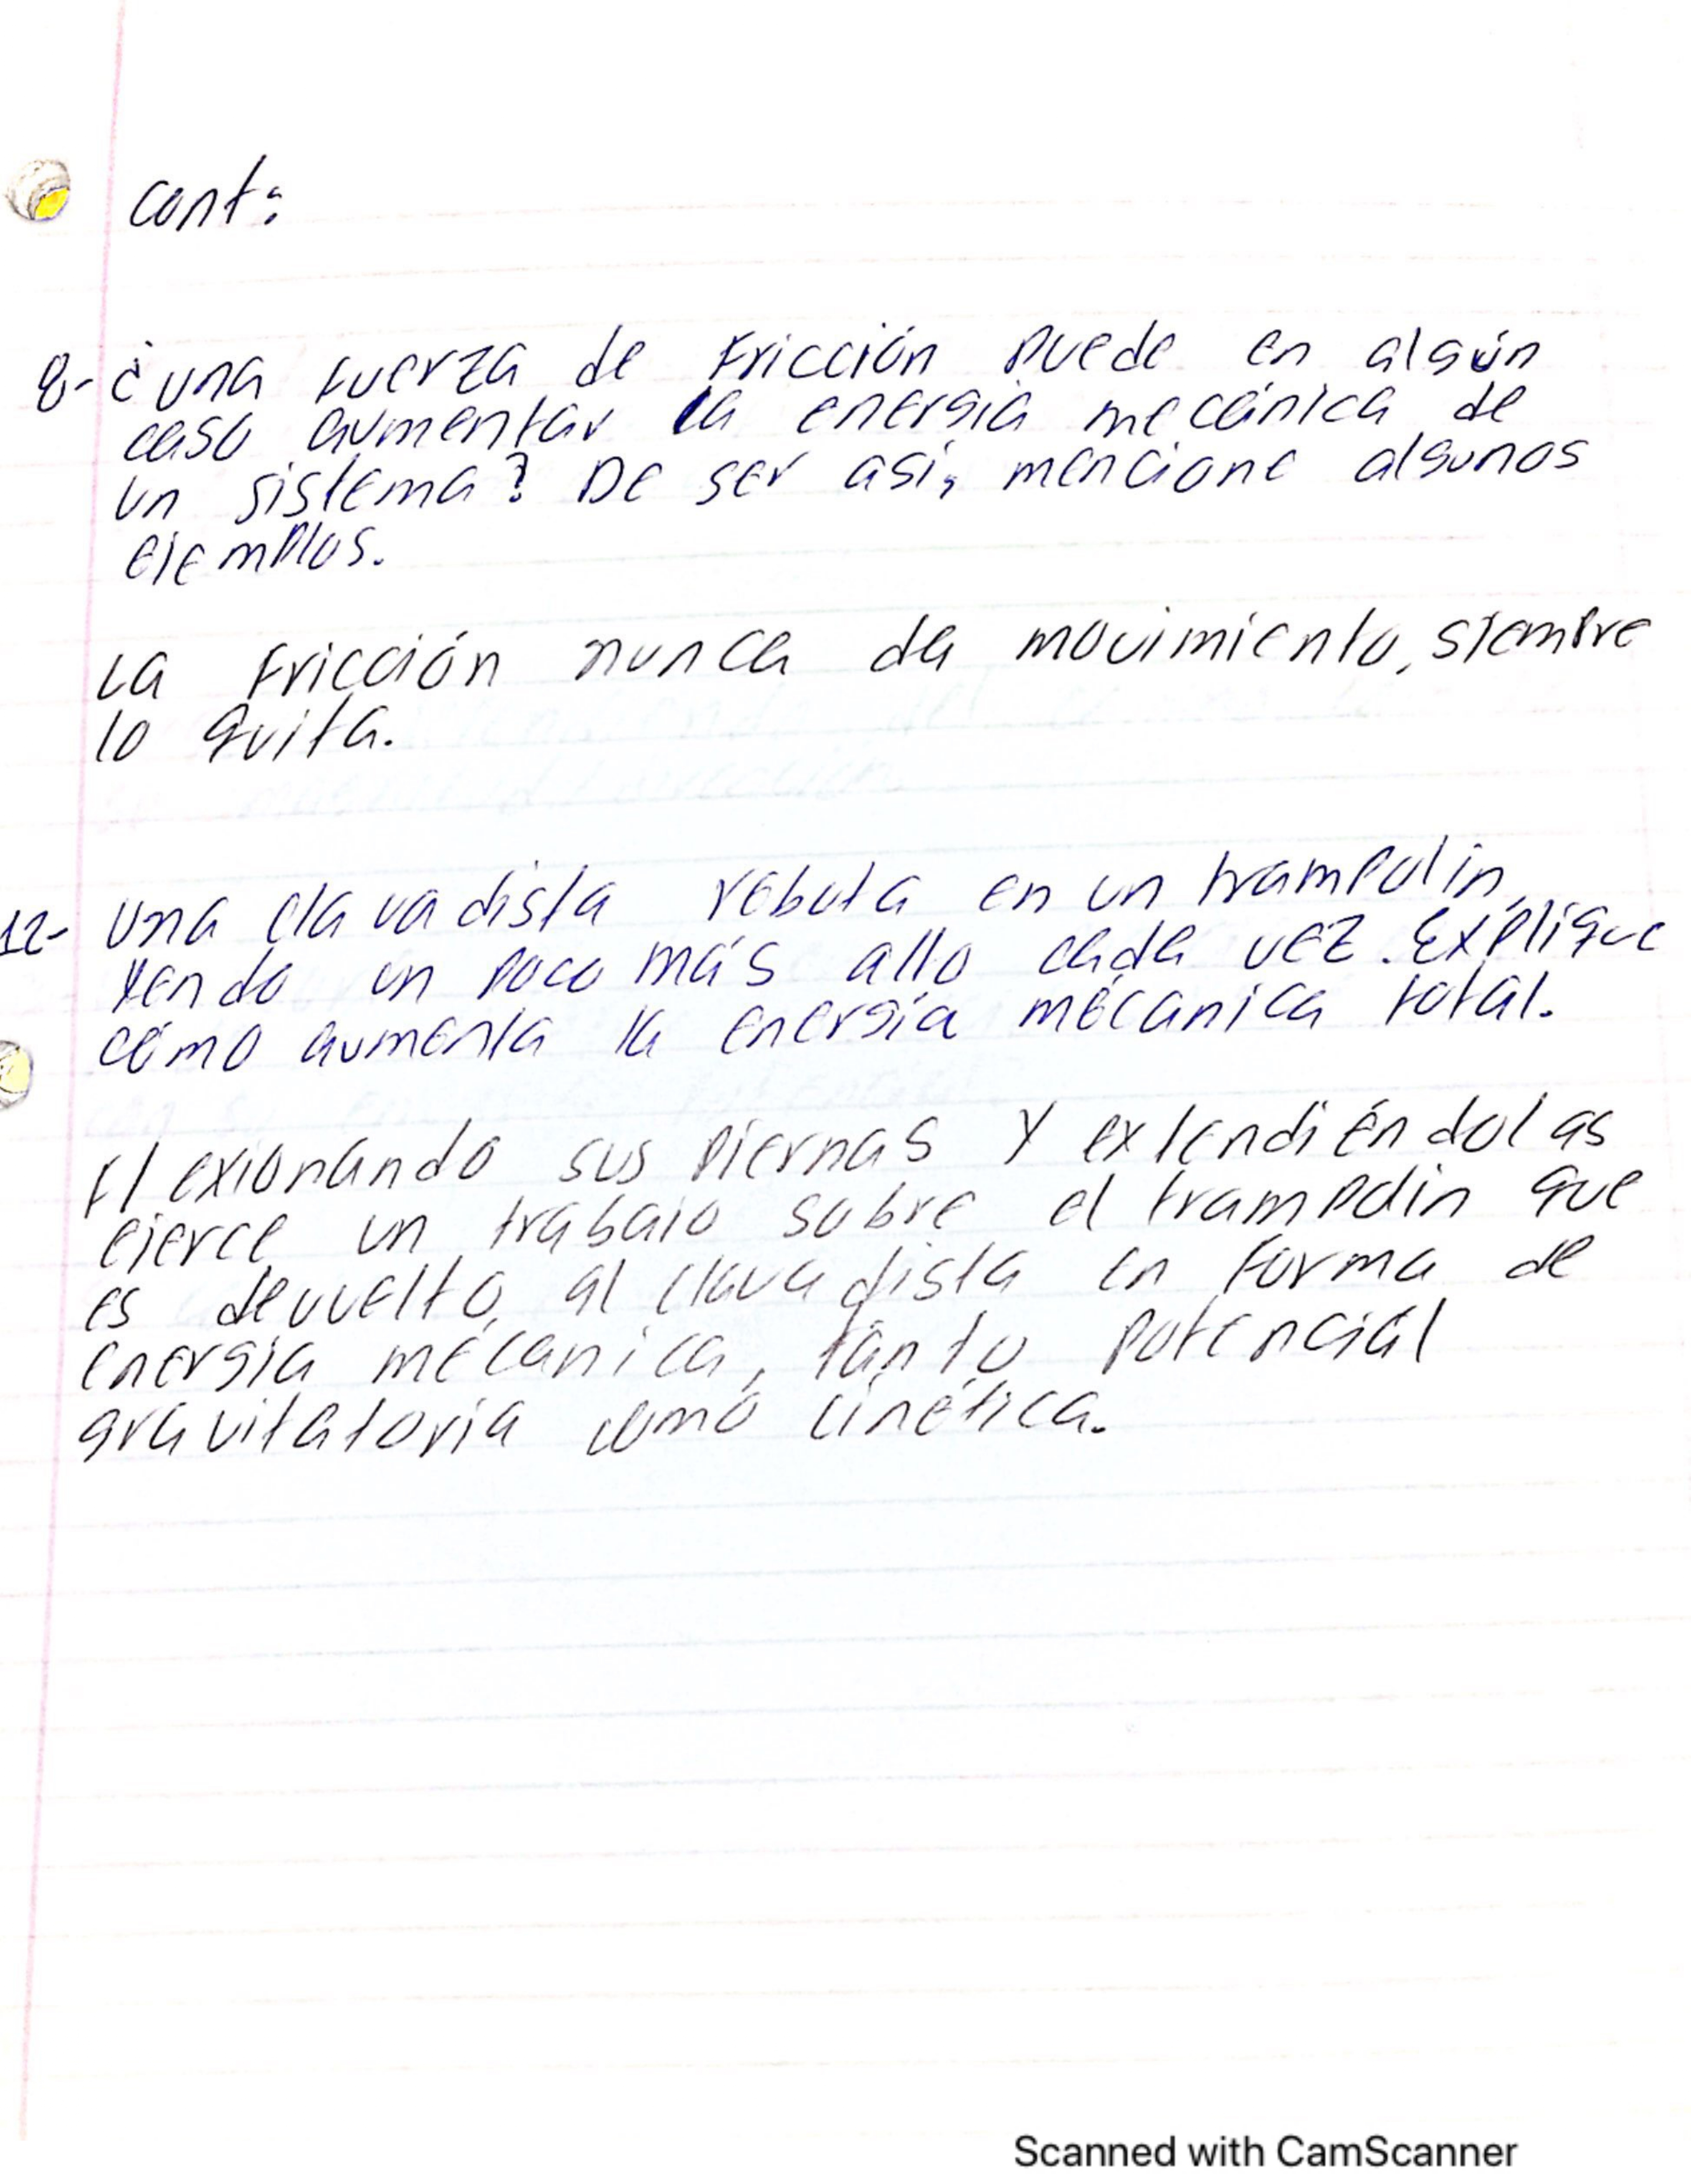 cont:
8- ¿una fuerza de fricción puede en algún
caso aumentar la energía mecánica de
un sistema? De ser así, mencione algunos
ejemplos.
La fricción nunca da movimiento, siempre
lo quita.
12- Una clavadista rebota en un trampolín,
yendo un poco más alto cada vez. Explique
cómo aumenta la energía mécanica total.
Flexionando sus piernas y extendiéndolas
ejerce un trabajo sobre el trampolin que
es devuelto al clavadista en forma de
energía mécanica, tanto potencial
gravitatoria como cinética.
Scanned with CamScanner